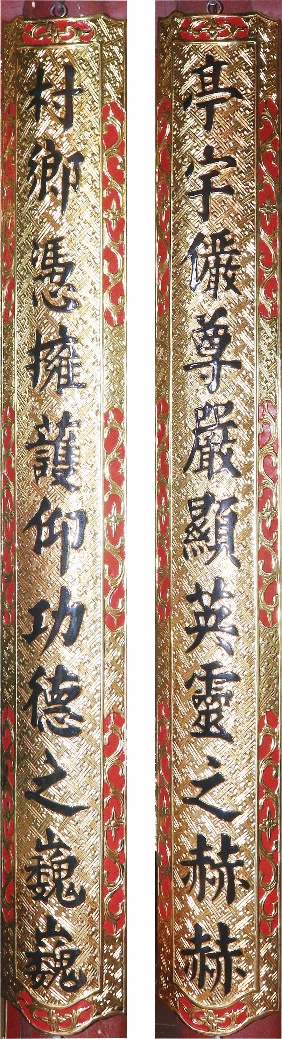 亭宇儼尊嚴顯英靈之赫赫
村鄉憑擁護仰功德之巍巍